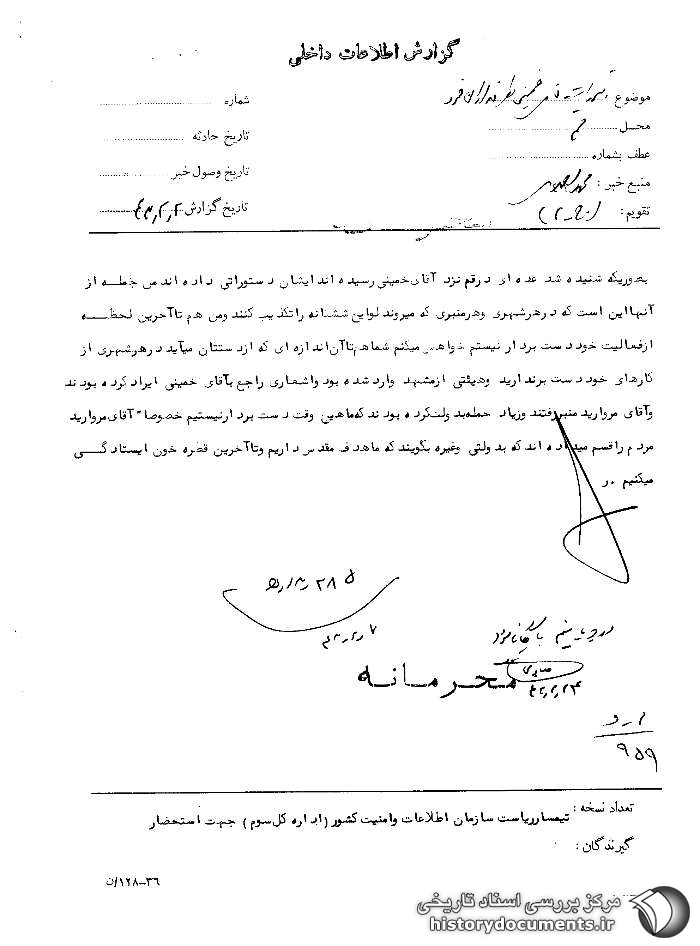 گزارش اطلاعات داخلی
موضوع :
شماره
محل قم
تاریخ حادثه
عطف بشماره
تاریخ وصول خبر
منبع خبر :
تقویم :
تاریخ گزارش
بطوریکه شنیده شد عده ای درقم نزد آقای خمینی رسیده اند ایشان دستوراتی داده اند من جمله از
آنها این است که درهرشهری وهرمنبری که میروند لوایح ششگانه را تکذیب کنند ومن هم تاآخرین لحظه
ازفعالیت خود دست بردار نیستم خواهش میکنم شماهم تاآن اندازه ای که ازدستتان میآید درهرشهری از
کارهای خود دست برندارید وهیئتی ازمشهد وارد شده بود واشعاری راجع بآقای خمینی ایراد کرده بودند
وآقای مروارید منبر رفتند وزیاد حمله بدولت کرده بودند که ماهیچ وقت دست بردارنیستیم خصوصا" آقای مروارید
مردم را قسم میداده اند که بدولتی وغیره بگویند که ماهدف مقدس داریم وتاآخرین قطره خون ایستادگی
میکنیم . ر
محرمانه
۹۵۹
تعداد نسخه :
تیمسار ریاست سازمان اطلاعات وامنیت کشور (اداره کل سوم) جهت استحضار
گیرندگان :
۳۶-۱۲۸/ن
مرکز بررسی اسناد تاریخی
historydocuments.ir